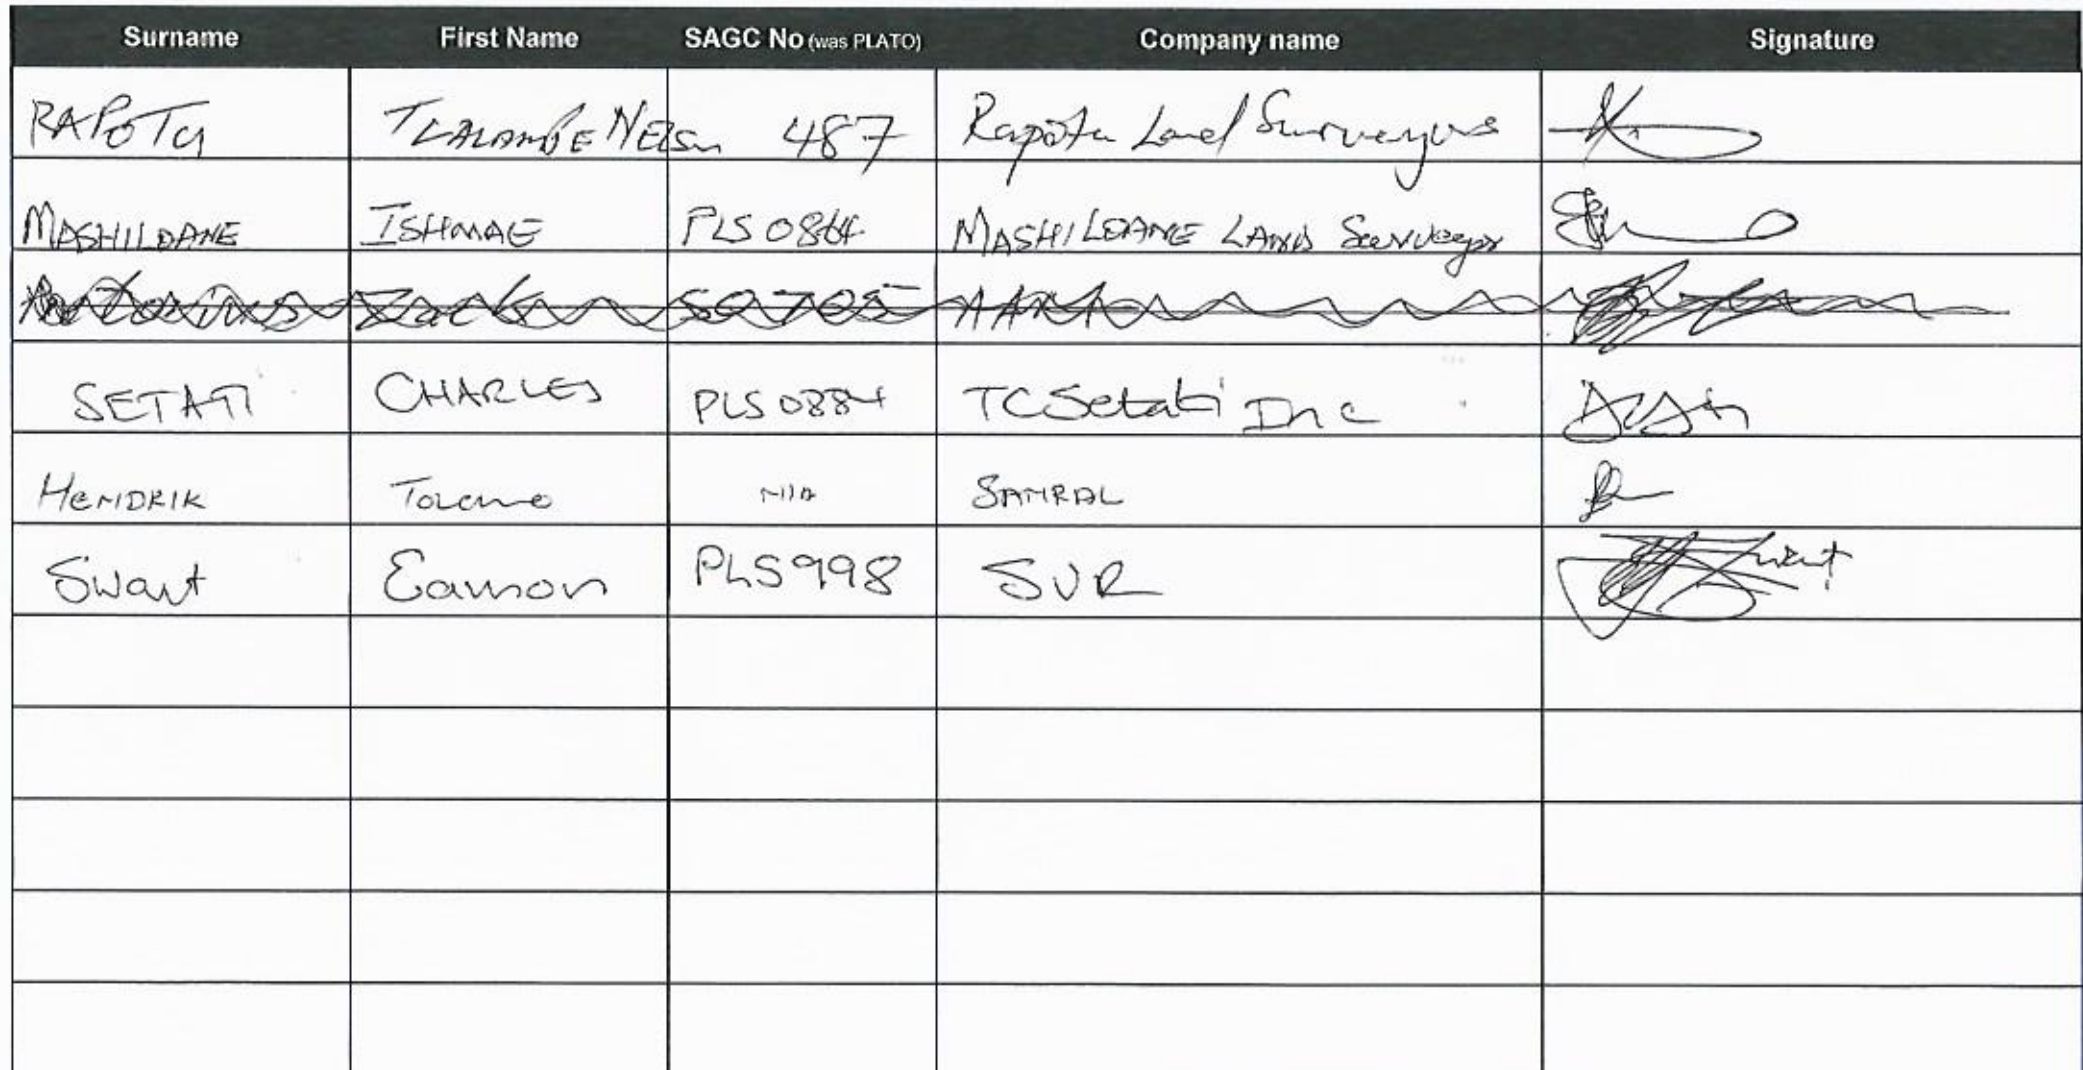 Surname First Name SAGC No (was PLATO) Company name Signature
RAPOTU Nelson 487 Rapotu Land Surveyors
MASHILOANE ISHMAE PLS 0864 MASHILOANE LAND Surveyor
Zack
SETATI CHARLES PLS 0884 TCSetati Inc
HENDRIK N/A SANRAL
Swart Eamon PLS998 SVR